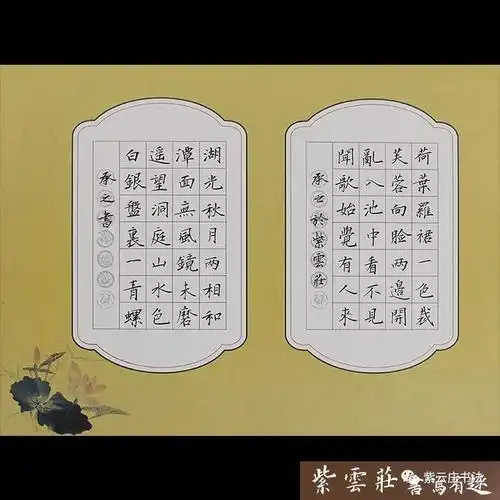 荷葉羅裙一色裁
芙蓉向臉兩邊開
亂入池中看不見
聞歌始覺有人來
承之於紫雲莊
湖光秋月兩相和
潭面無風鏡未磨
遥望洞庭山水色
白銀盤裏一青螺
承之書
紫雲莊 書寫有
紫云庄书法